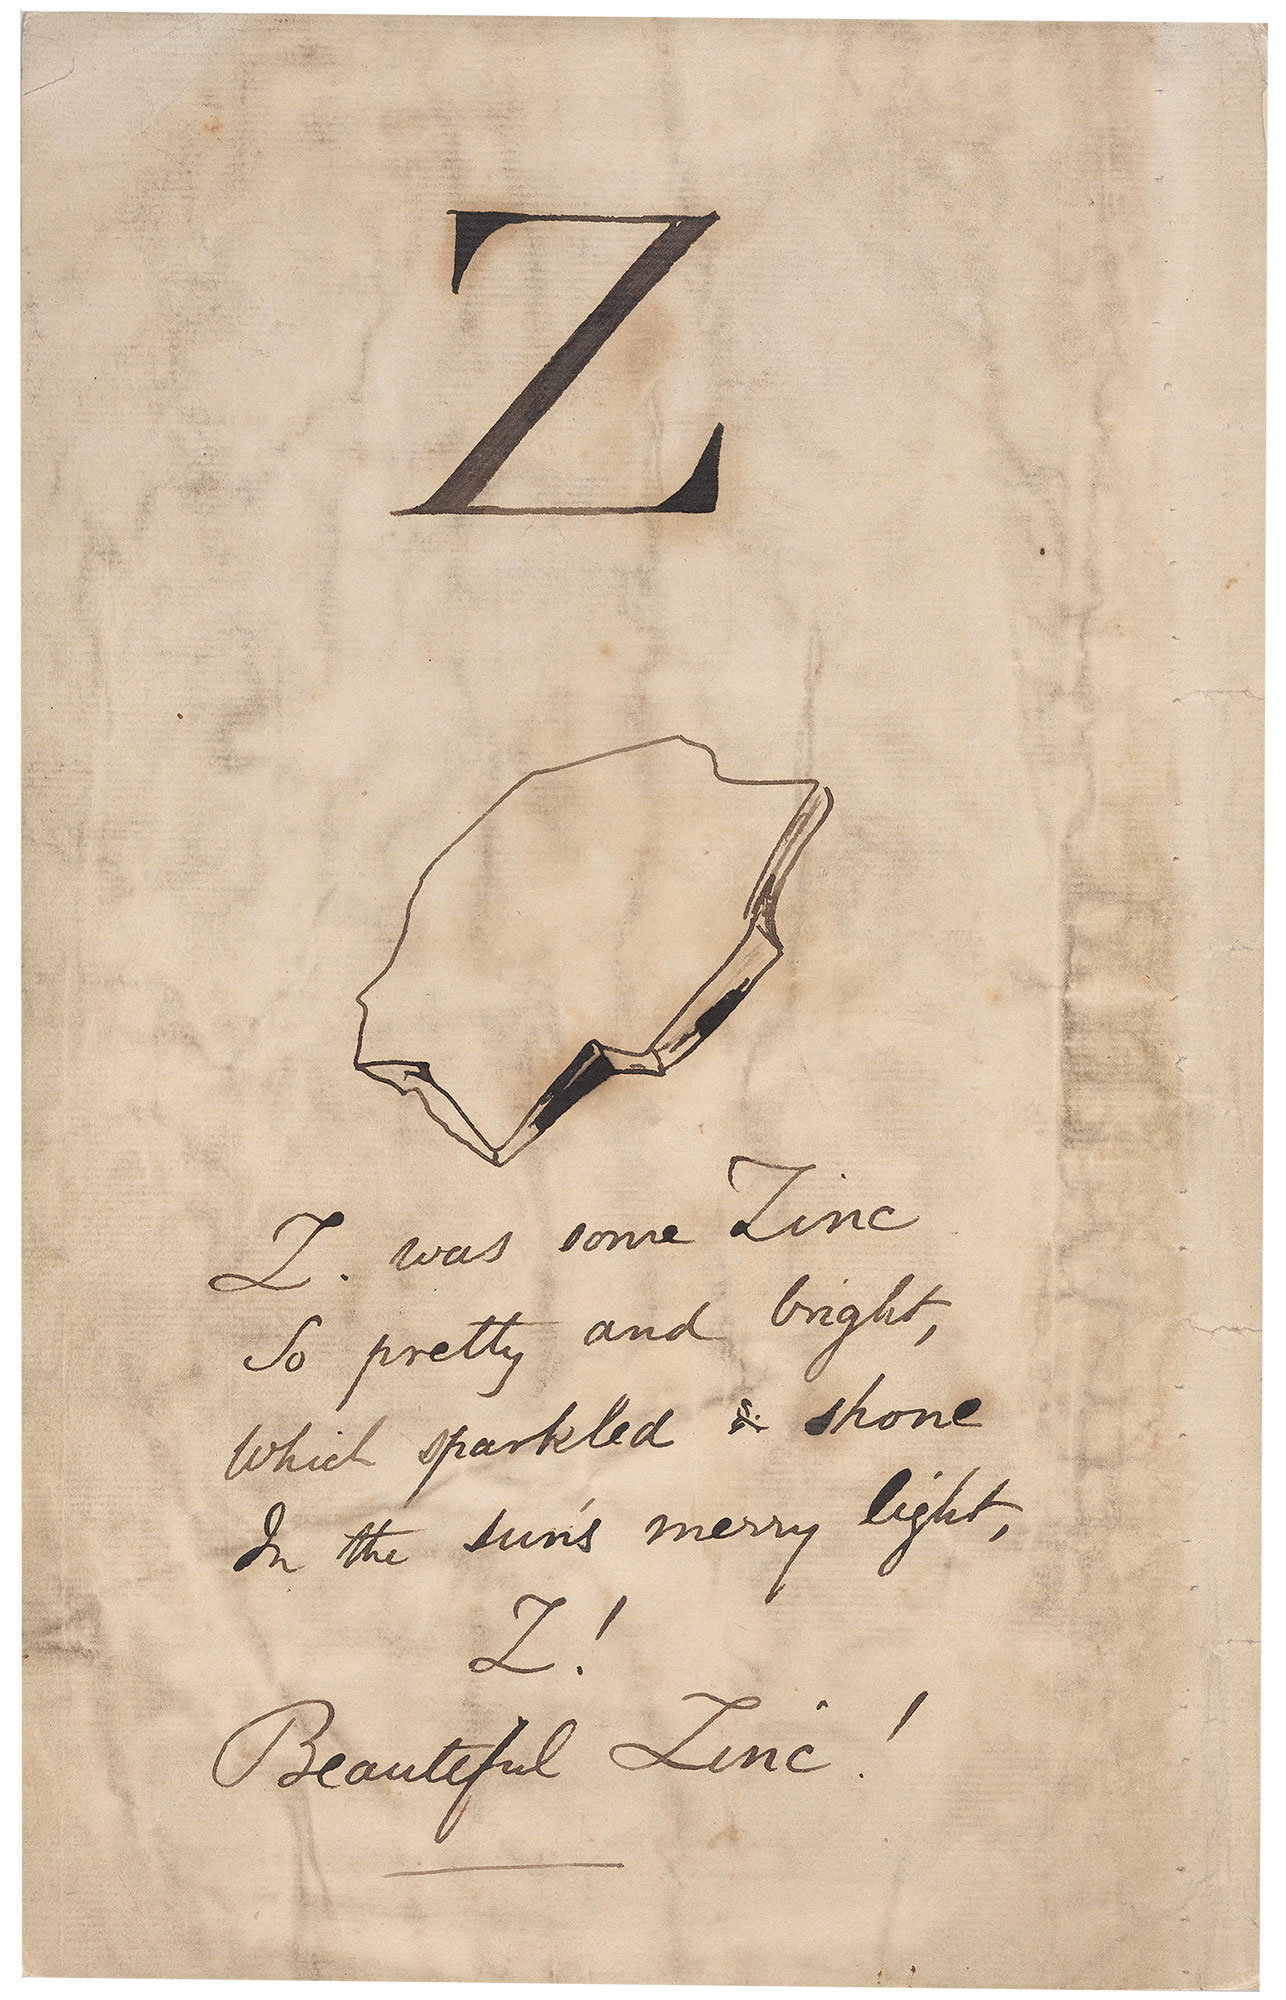 Z
Z. was some Zinc
So pretty and bright,
Which sparkled & shone
In the sun's merry light,
Z!
Beauteful Zinc!